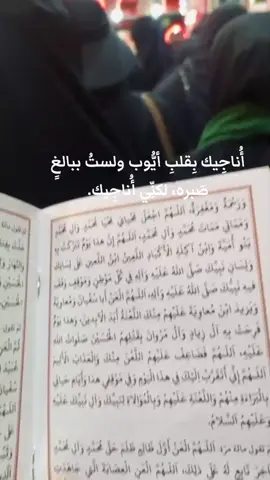 أُناجِيك بِقلبِ أيُّوب ولستُ ببالغٍ
صَبره، لكنّي أُناجِيك.
وَرَحْمَةٌ وَمَغْفِرَةٌ، اَللّٰهُمَّ اجْعَلْ مَحْيَايَ مَحْيَا مُحَمَّدٍ وَآلِ مُحَمَّدٍ
وَمَمَاتِي مَمَاتَ مُحَمَّدٍ وَآلِ مُحَمَّدٍ، اَللّٰهُمَّ إِنَّ هٰذَا يَوْمٌ تَبَرَّكَتْ بِهِ
بَنُو أُمَيَّةَ وَابْنُ آكِلَةِ الْأَكْبَادِ اللَّعِينُ ابْنُ اللَّعِينِ عَلَى لِسَانِكَ
وَلِسَانِ نَبِيِّكَ صَلَّى اللهُ عَلَيْهِ وَآلِهِ فِي كُلِّ مَوْطِنٍ وَمَوْقِفٍ وَقَفَ
فِيهِ نَبِيُّكَ صَلَّى اللهُ عَلَيْهِ وَآلِهِ، اَللّٰهُمَّ الْعَنْ أَبَا سُفْيَانَ وَمُعَاوِيَةَ
وَيَزِيدَ ابْنَ مُعَاوِيَةَ عَلَيْهِمْ مِنْكَ اللَّعْنَةُ أَبَدَ الْآبِدِينَ، وَهٰذَا يَوْمٌ
فَرِحَتْ بِهِ آلُ زِيَادٍ وَآلُ مَرْوَانَ بِقَتْلِهِمُ الْحُسَيْنَ صَلَوَاتُ اللهِ
عَلَيْهِ، اَللّٰهُمَّ فَضَاعِفْ عَلَيْهِمُ اللَّعْنَ مِنْكَ وَالْعَذَابَ الْأَلِيمَ
اَللّٰهُمَّ إِنِّي أَتَقَرَّبُ إِلَيْكَ فِي هٰذَا الْيَوْمِ وَفِي مَوْقِفِي هٰذَا وَأَيَّامِ حَيَاتِي
بِالْبَرَاءَةِ مِنْهُمْ وَاللَّعْنَةِ عَلَيْهِمْ وَبِالْمُوَالَاةِ لِنَبِيِّكَ وَآلِ نَبِيِّكَ عَلَيْهِ
وَعَلَيْهِمُ السَّلَامُ.
اَللّٰهُمَّ الْعَنْ أَوَّلَ ظَالِمٍ ظَلَمَ حَقَّ مُحَمَّدٍ وَآلِ مُحَمَّدٍ
تَابِعٍ لَهُ عَلَى ذٰلِكَ، اَللّٰهُمَّ الْعَنِ الْعِصَابَةَ الَّتِي جَاهَدَتِ